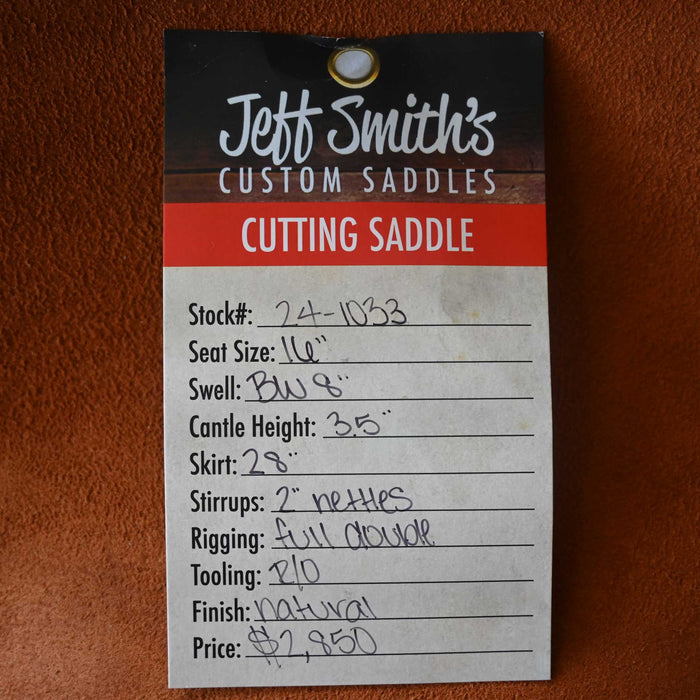 Jeff Smith's
CUSTOM SADDLES
CUTTING SADDLE
Stock#: 24-1033
Seat Size: 16"
Swell: BW 8"
Cantle Height: 3.5"
Skirt: 28"
Stirrups: 2" nettles
Rigging: full double
Tooling: R/O
Finish: natural
Price: $2,850